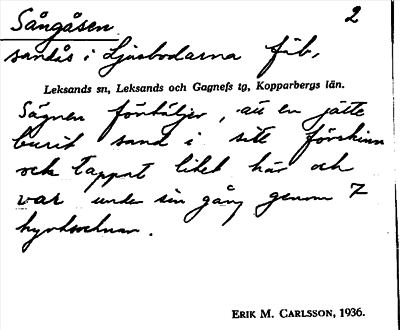 Sångåsen 2
sandås i Ljusbodarna fäb.
Leksands sn, Leksands och Gagnefs tg, Kopparbergs län.
Sägnen förtäljer, att en jätte
burit sand i sitt förskinn
och tappat litet här och
var under sin gång genom 7
kyrksocknar.
ERIK M. CARLSSON, 1936.